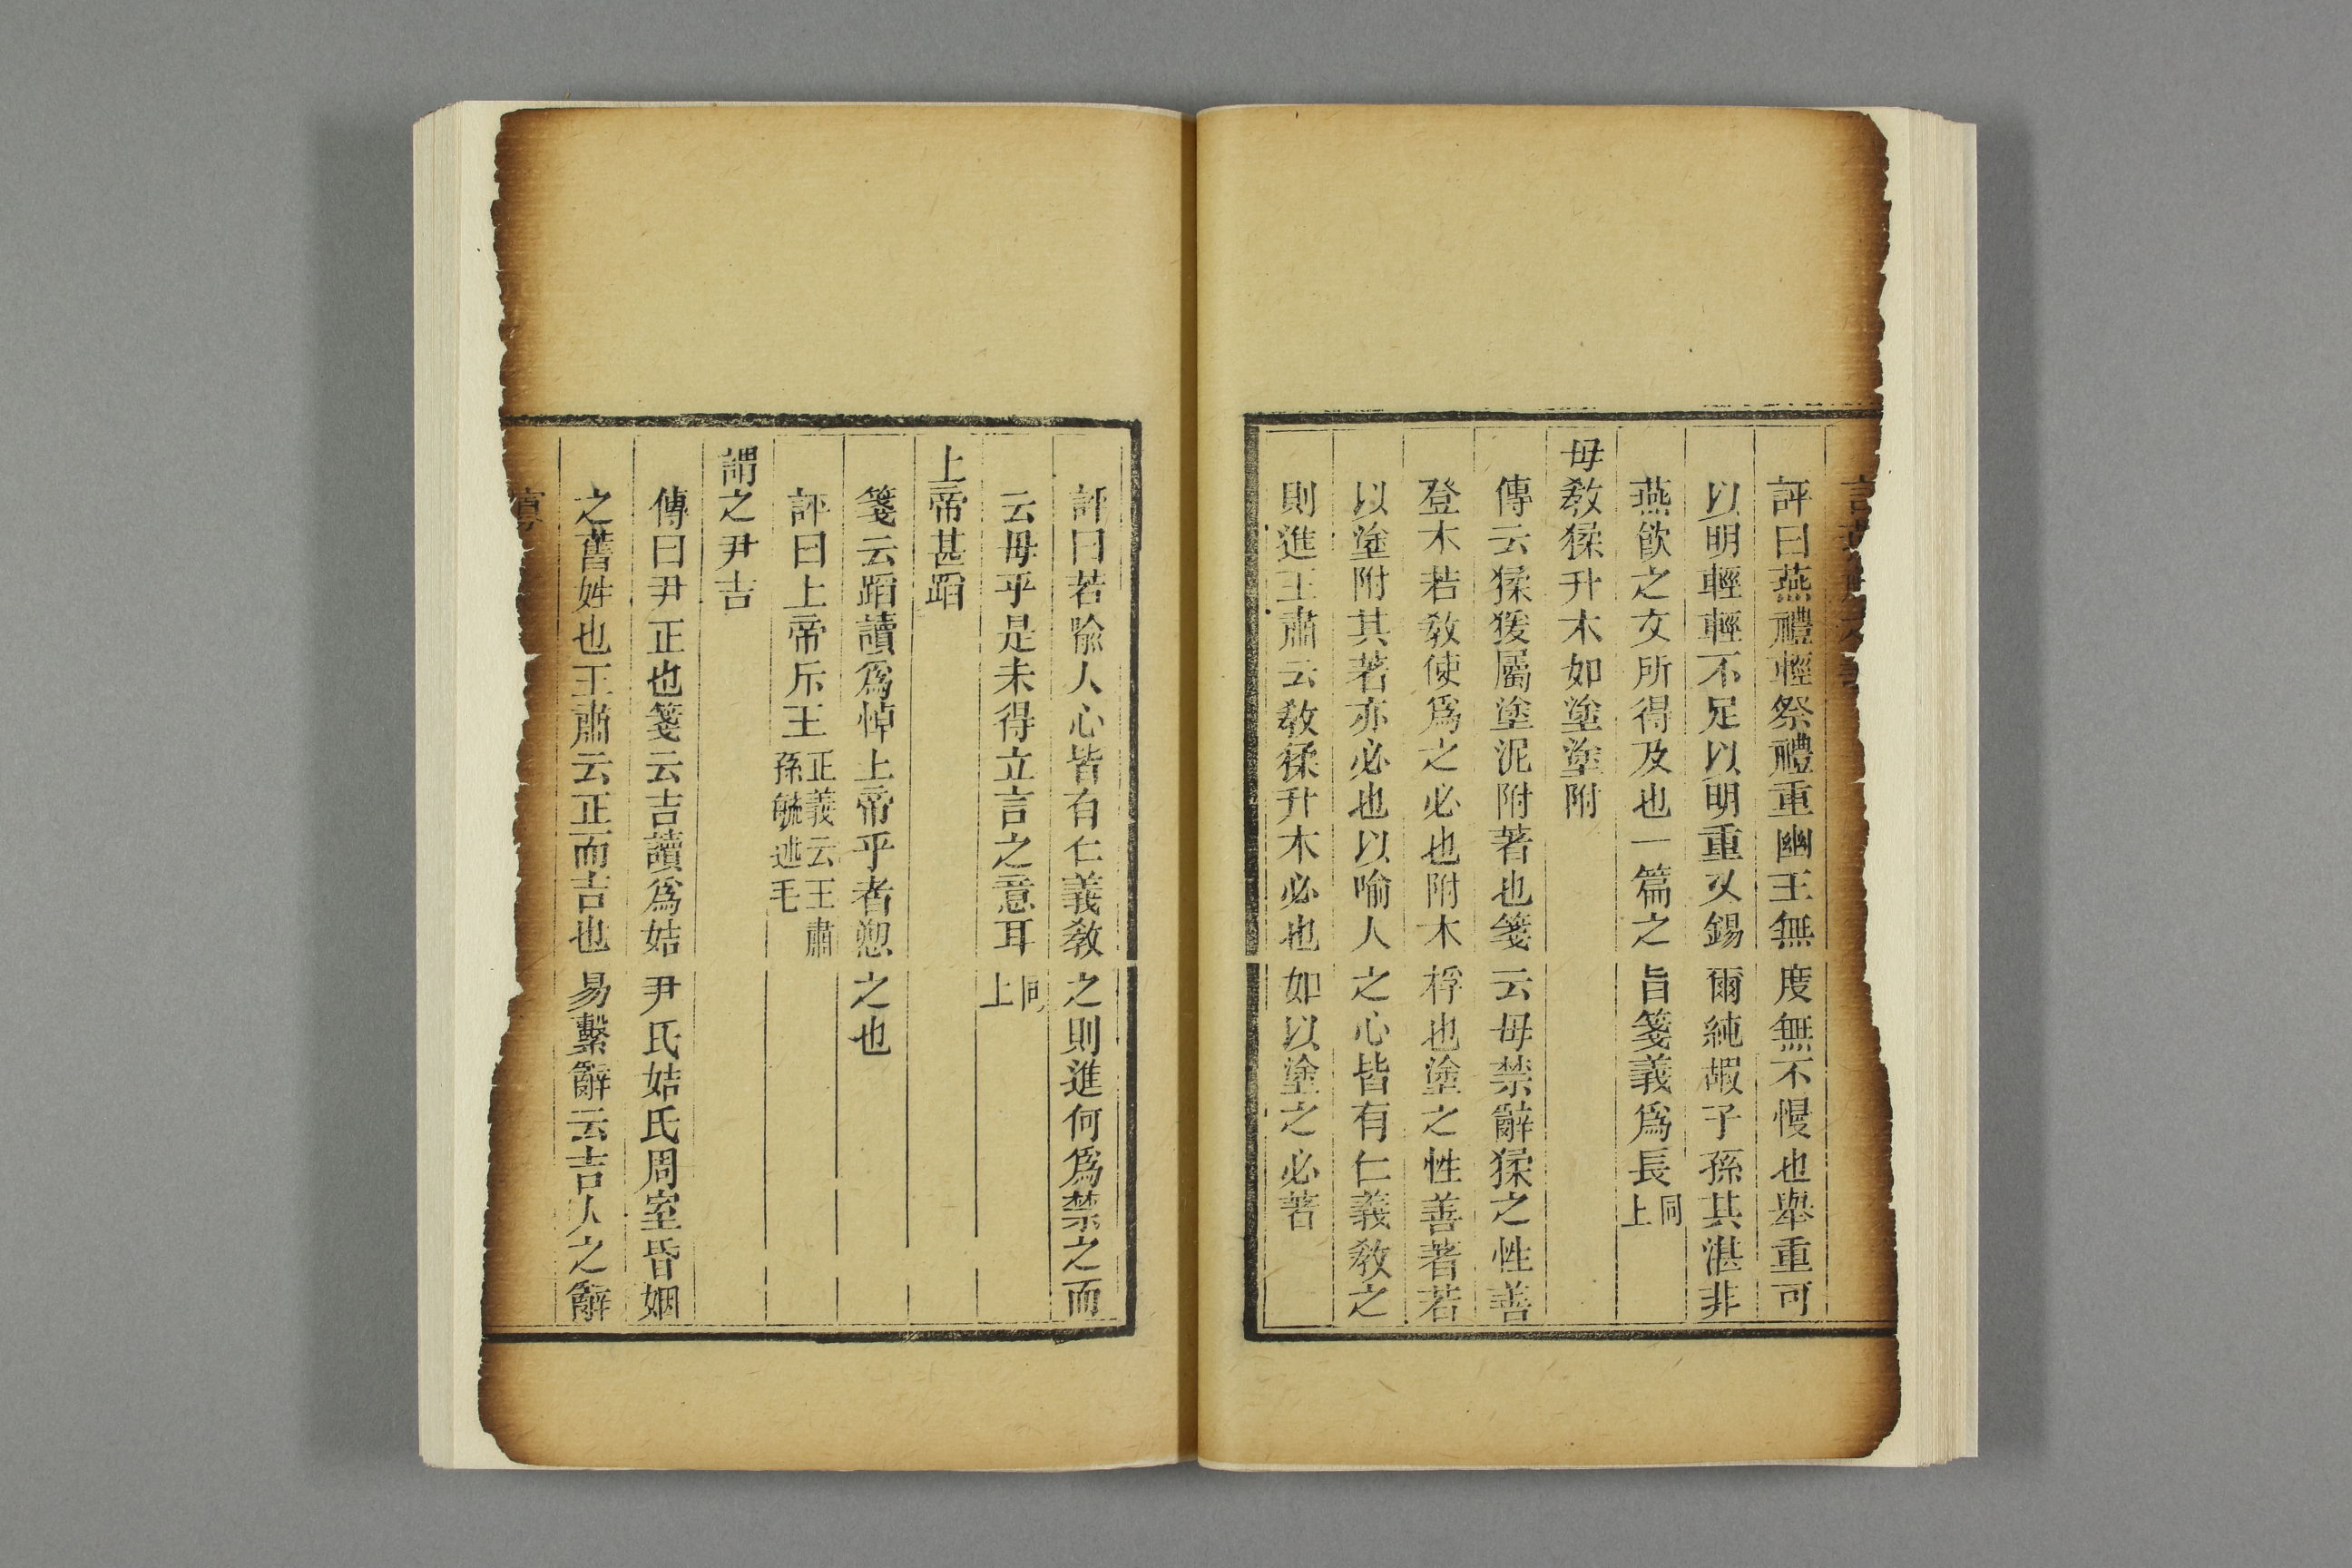 評曰燕禮輕祭禮重幽王無度無不慢也舉重可
以明輕輕不足以明重又錫爾純嘏子孫其湛非
燕飲之文所得及也一篇之旨箋義爲長同上
毋敎猱升木如塗塗附
傳云猱猨屬塗泥附著也箋云毋禁辭猱之性善
登木若敎使爲之必也附木桴也塗之性善著若
以塗附其著亦必也以喻人之心皆有仁義敎之
則進王肅云敎猱升木必也如以塗之必著
評曰若喻人心皆有仁義敎之則進何爲禁之而
云毋乎是未得立言之意耳同上
上帝甚蹈
箋云蹈讀爲悼上帝乎者愬之也
評曰上帝斥王正義云王肅孫毓述毛
謂之尹吉
傳曰尹正也箋云吉讀爲姞尹氏姞氏周室昏姻
之舊姓也王肅云正而吉也易繫辭云吉人之辭